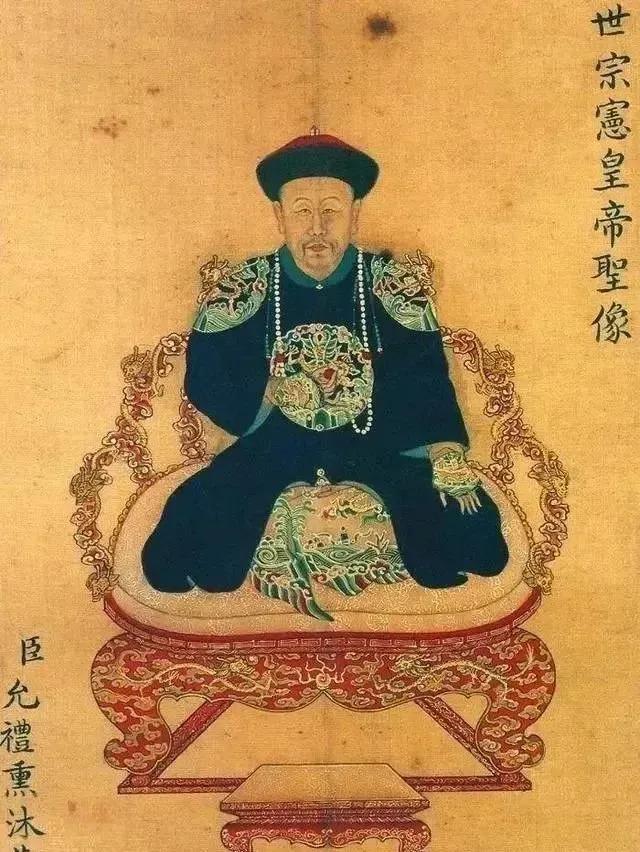 世宗憲皇帝聖像
臣允禮熏沐